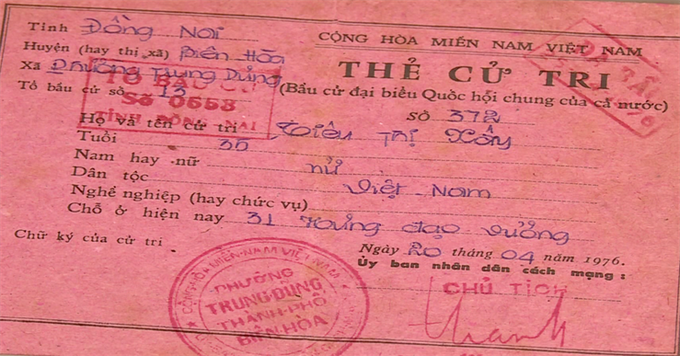 Tỉnh Đồng Nai
Huyện (hay thị xã) Biên Hòa
Xã Phường Trung Dũng
Tổ bầu cử số 13
TỔ BẦU CỬ
Số 0553
TỈNH ĐỒNG NAI
CỘNG HÒA MIỀN NAM VIỆT NAM
THẺ CỬ TRI
(Bầu cử đại biểu Quốc hội chung của cả nước)
SỐ 372
ĐÃ BẦU
Họ và tên cử tri Tiêu Thị
Tuổi
Nam hay nữ nữ
Dân tộc Việt-Nam
Nghề nghiệp (hay chức vụ)
Chỗ ở hiện nay 31 Hưng đạo vương
Ngày 20 tháng 04 năm 1976.
Chữ ký của cử tri
Ủy ban nhân dân cách mạng:
CHỦ TỊCH
CỘNG HÒA MIỀN NAM VIỆT NAM
PHƯỜNG
TRUNG DŨNG
THÀNH PHỐ
BIÊN HÒA